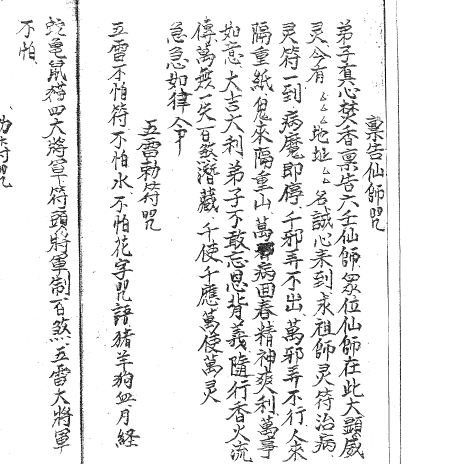 稟告仙師咒
弟子真心焚香稟告六壬仙師眾位仙師在此大顯威
灵今有厶厶地址厶厶名誠心来到求祖師灵符治病
灵符一到病魔即停千邪弄不出萬邪弄不行人來
隔重紙鬼來隔重山萬病回春精神爽利萬事
如意大吉大利弟子不敢忘恩背義隨行香火流
傳萬無一失百煞潛藏千使千應萬使萬灵
急急如律令
五雷勅符咒
五雷不怕符不怕水不怕花字咒語猪羊狗血月経
蛇龟鼠猫四大將軍符頭將軍制百煞五雷大將軍
不怕